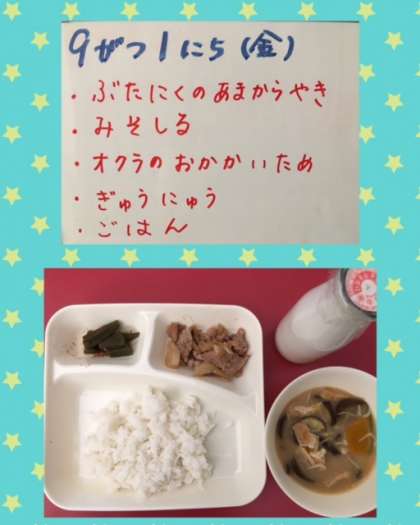 9がつ1にち(金)
・ぶたにくのあまからやき
・みそしる
・オクラのおかかいため
・ぎゅうにゅう
・ごはん